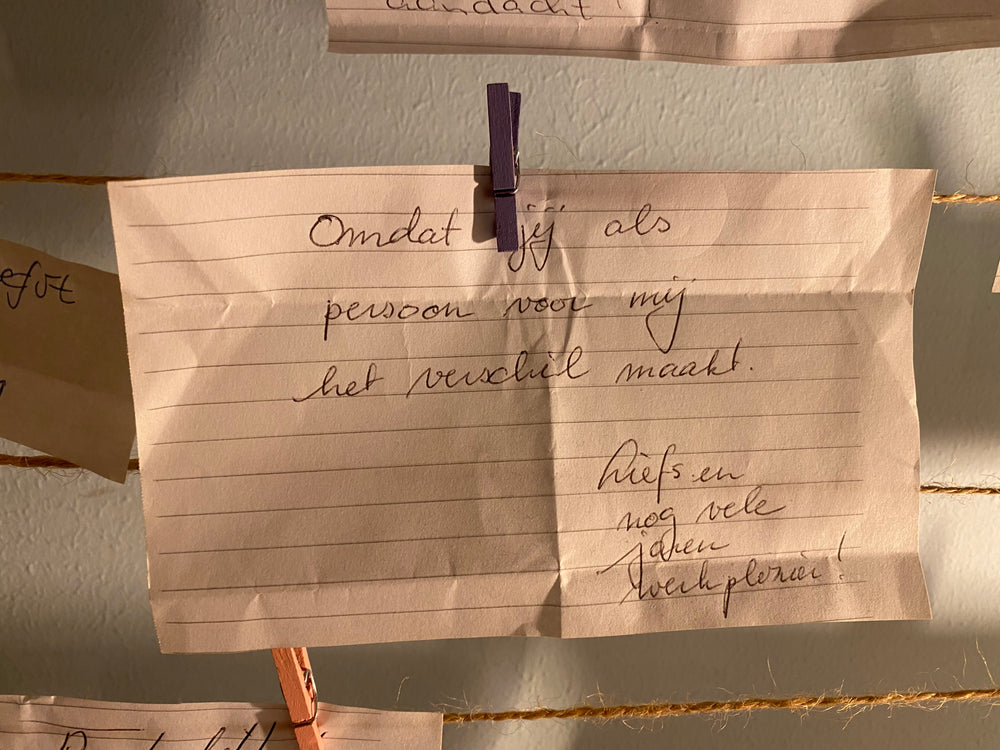 aandacht!
Omdat jij als
persoon voor mij
het verschil maakt.
Liefs en
nog vele
jaren
werkplezier!